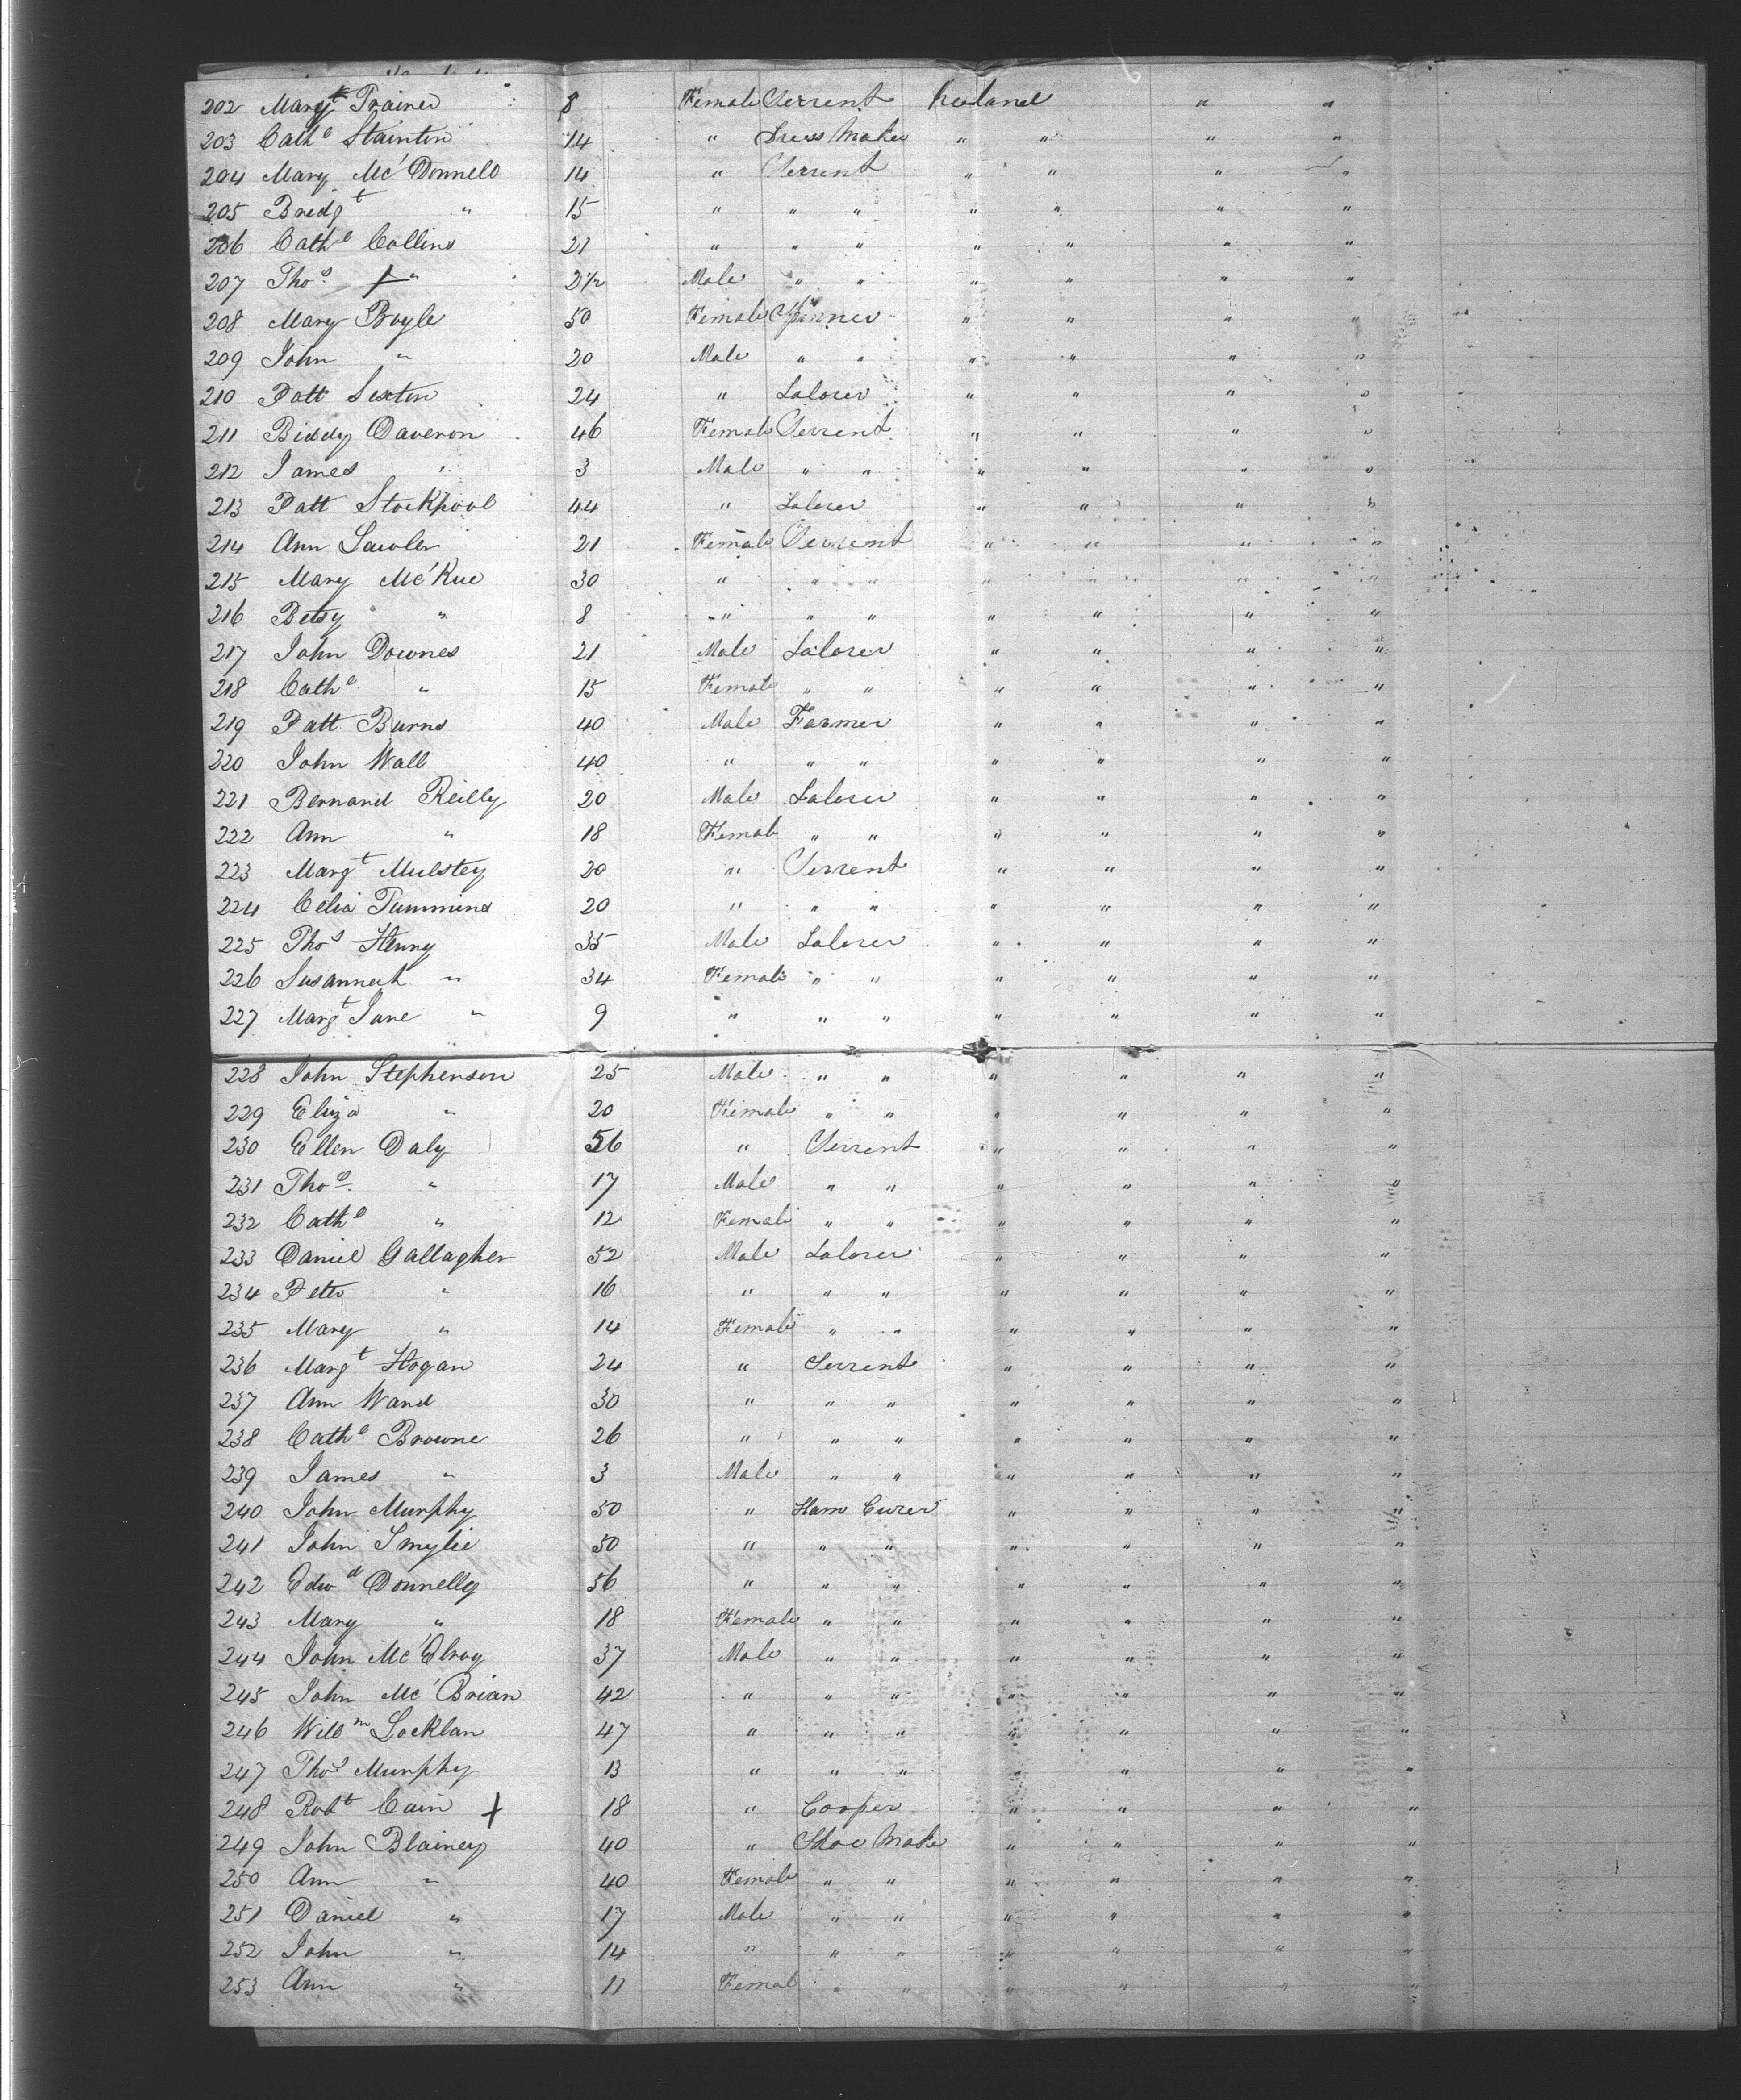 202 Margt Trainer 8 Female Servent Ireland " "
203 Cathe Stainton 14 " Dress Maker " " " "
204 Mary Mc'Donnell 14 " Servent " " " "
205 Bridgt " 15 " " " " " " "
206 Cathe Collins 21 " " " " " " "
207 Thos " 2 1/2 Male " " " " " "
208 Mary Boyle 50 Female Spinner " " " "
209 John " 20 Male " " " " " "
210 Patt Sexton 24 " Laborer " " " "
211 Biddy Daveron 46 Female Servent " " " "
212 James " 3 Male " " " " " "
213 Patt Stockpool 44 " Laborer " " " "
214 Ann Lawler 21 Female Servent " " " "
215 Mary Mc'Kue 30 " " " " " " "
216 Betsy " 8 " " " " " " "
217 John Downes 21 Male Laborer " " " "
218 Cathe " 15 Female " " " " " "
219 Patt Burns 40 Male Farmer " " " "
220 John Wall 40 " " " " " " "
221 Bernard Reilly 20 Male Laborer " " " "
222 Ann " 18 Female " " " " " "
223 Margt Mulstey 20 " Servent " " " "
224 Celia Tummins 20 " " " " " " "
225 Thos Henry 35 Male Laborer " " " "
226 Susannah " 34 Female " " " " " "
227 Margt Jane " 9 " " " " " " "
228 John Stephenson 25 Male " " " " " "
229 Eliza " 20 Female " " " " " "
230 Ellen Daly 56 " Servent " " " "
231 Thos " 17 Male " " " " " "
232 Cathe " 12 Female " " " " " "
233 Daniel Gallagher 52 Male Laborer " " " "
234 Peter " 16 " " " " " " "
235 Mary " 14 Female " " " " " "
236 Margt Hogan 24 " Servent " " " "
237 Ann Ward 30 " " " " " " "
238 Cathe Browne 26 " " " " " " "
239 James " 3 Male " " " " " "
240 John Murphy 50 " Ham Curer " " " "
241 John Smylie 50 " " " " " " "
242 Edwd Donnelly 56 " " " " " " "
243 Mary " 18 Female " " " " " "
244 John Mc'Elroy 37 Male " " " " " "
245 John Mc'Brian 42 " " " " " " "
246 Willm Locklan 47 " " " " " " "
247 Thos Murphy 13 " " " " " " "
248 Robt Cain + 18 " Cooper " " " "
249 John Blainey 40 " Shoe Make " " " "
250 Ann " 40 Female " " " " " "
251 Daniel " 17 Male " " " " " "
252 John " 14 " " " " " " "
253 Ann " 11 Female " " " " " "